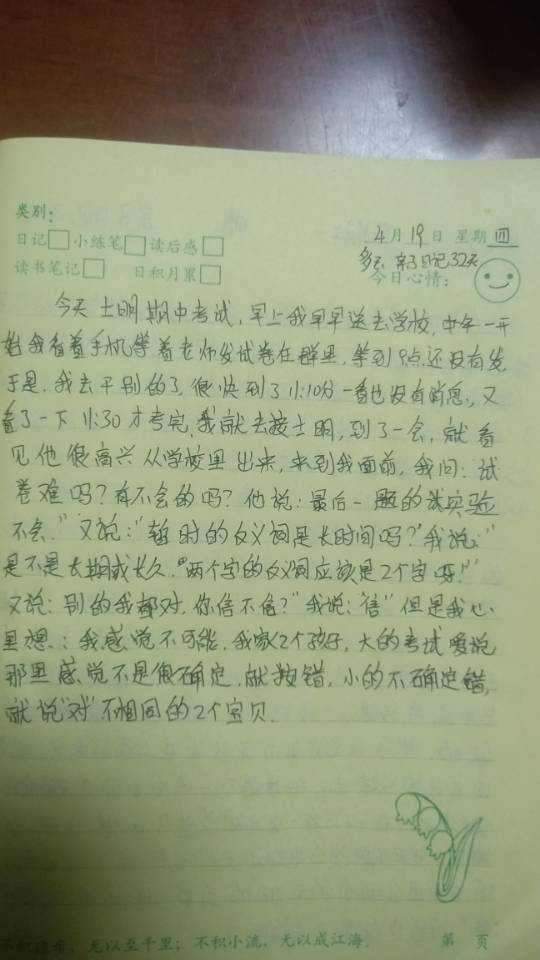 类别：
日记 小练笔 读后感 4月19日 星期四
亲子日记32天
读书笔记 日积月累 今日心情：
今天士明期中考试，早上我早早送去学校，中午一开
始我看着手机等着老师发试卷在群里，等到9点还没有发，
于是，我去干别的了，很快到了11:10分一看也没有消息，又
看了一下11:30才考完，我就去接士明，到了一会，就看
见他很高兴从学校里出来，来到我面前，我问：试
卷难吗？有不会的吗？他说：最后一题的试实验
不会．"又说："暂时的反义词是长时间吗？"我说："
是不是长期或长久．"两个字的反义词应该是2个字呀！"
又说：别的我都对，你信不信？"我说："信"但是我心
里想：我感觉不可能，我家2个孩子，大的考试爱说
那里感觉不是很确定，就按错，小的不确定错，
就说"对"不相同的2个宝贝．
无以至千里；不积小流，无以成江海．
第 页